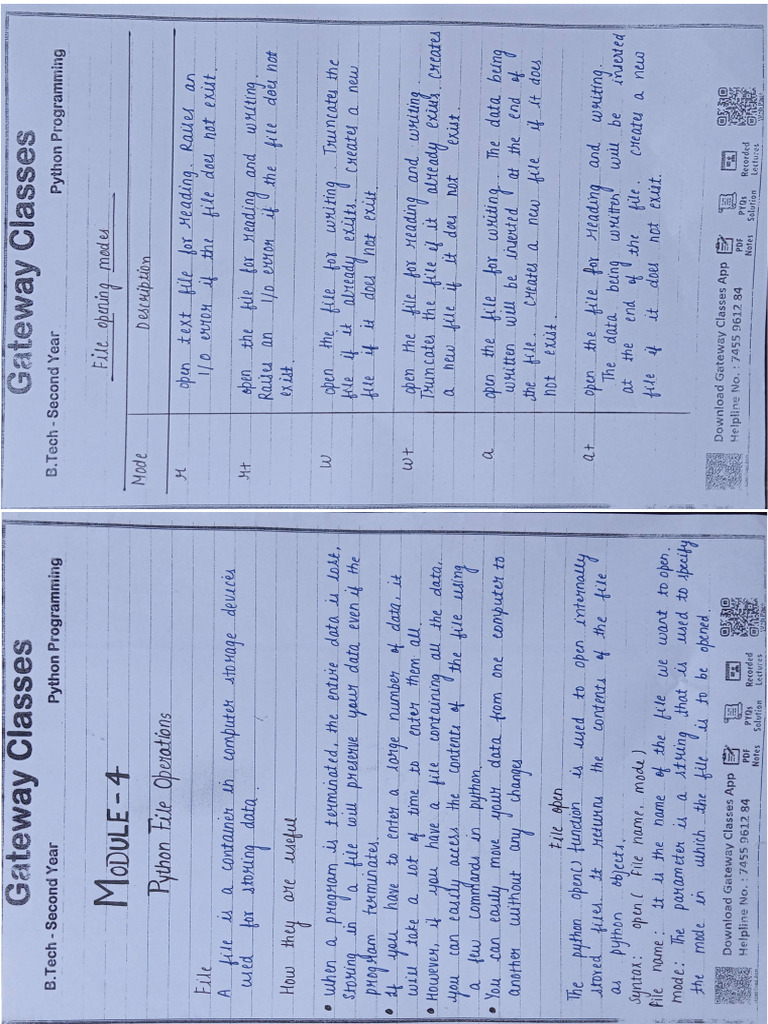 Gateway Classes
B.Tech - Second Year Python Programming
MODULE-4
Python File Operations
File
A file is a container in computer storage devices
used for storing data.
How they are useful
• When a program is terminated, the entire data is lost.
Storing in a file will preserve your data even if the
program terminates.
• If you have to enter a large number of data, it
will take a lot of time to enter them all.
• However, if you have a file containing all the data,
you can easily access the contents of the file using
a few commands in python.
• You can easily move your data from one computer to
another without any changes
File open
The python open() function is used to open internally
stored files. It returns the contents of the file
as python objects.
Syntax: open( File name, mode)
File name: it is the name of the file we want to open.
mode: The parameter is a string that is used to specify
the mode in which the file is to be opened.
Download Gateway Classes App
Helpline No. : 7455 9612 84
PDF Notes
PYQs Solution
Recorded Lectures
Gateway Classes
B.Tech - Second Year Python Programming
File opening modes
Mode Description
r open text file for reading. Raises an
I/O error if the file does not exist.
r+ open the file for reading and writing.
Raises an I/O error if the file does not
exist
w open the file for writing. Truncates the
file if it already exists. creates a new
file if it does not exist.
w+ open the file for reading and writing.
Truncates the file if it already exists. creates
a new file if it does not exist.
a open the file for writing. The data being
written will be inserted at the end of
the file. creates a new file if it does
not exist.
a+ open the file for reading and writing.
The data being written will be inserted
at the end of the file. creates a new
file if it does not exist.
Download Gateway Classes App
Helpline No. : 7455 9612 84
PDF Notes
PYQs Solution
Recorded Lectures